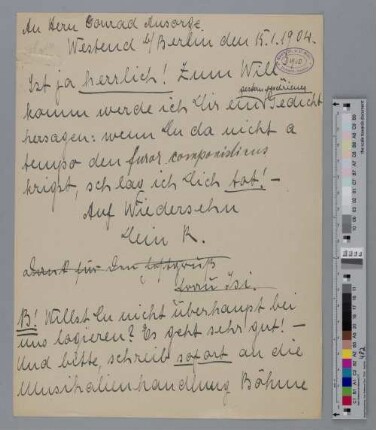 An Herrn Conrad Ansorge.
Westend b/Berlin den 15.1.1904.
Ist ja herrlich! Zum Will
komm werde ich Dir ein Gedicht
hersagen: wenn Du da nicht a
tempo den furor componendi
krigst, schlag ich Dich tot! –
Auf Wiedersehn
Dein R.
Dank für den
Frau Isi.
B! Willst Du nicht überhaupt bei
uns logieren? Es geht sehr gut! –
Und bitte, schreib sofort an die
Musikalienhandlung Böhme